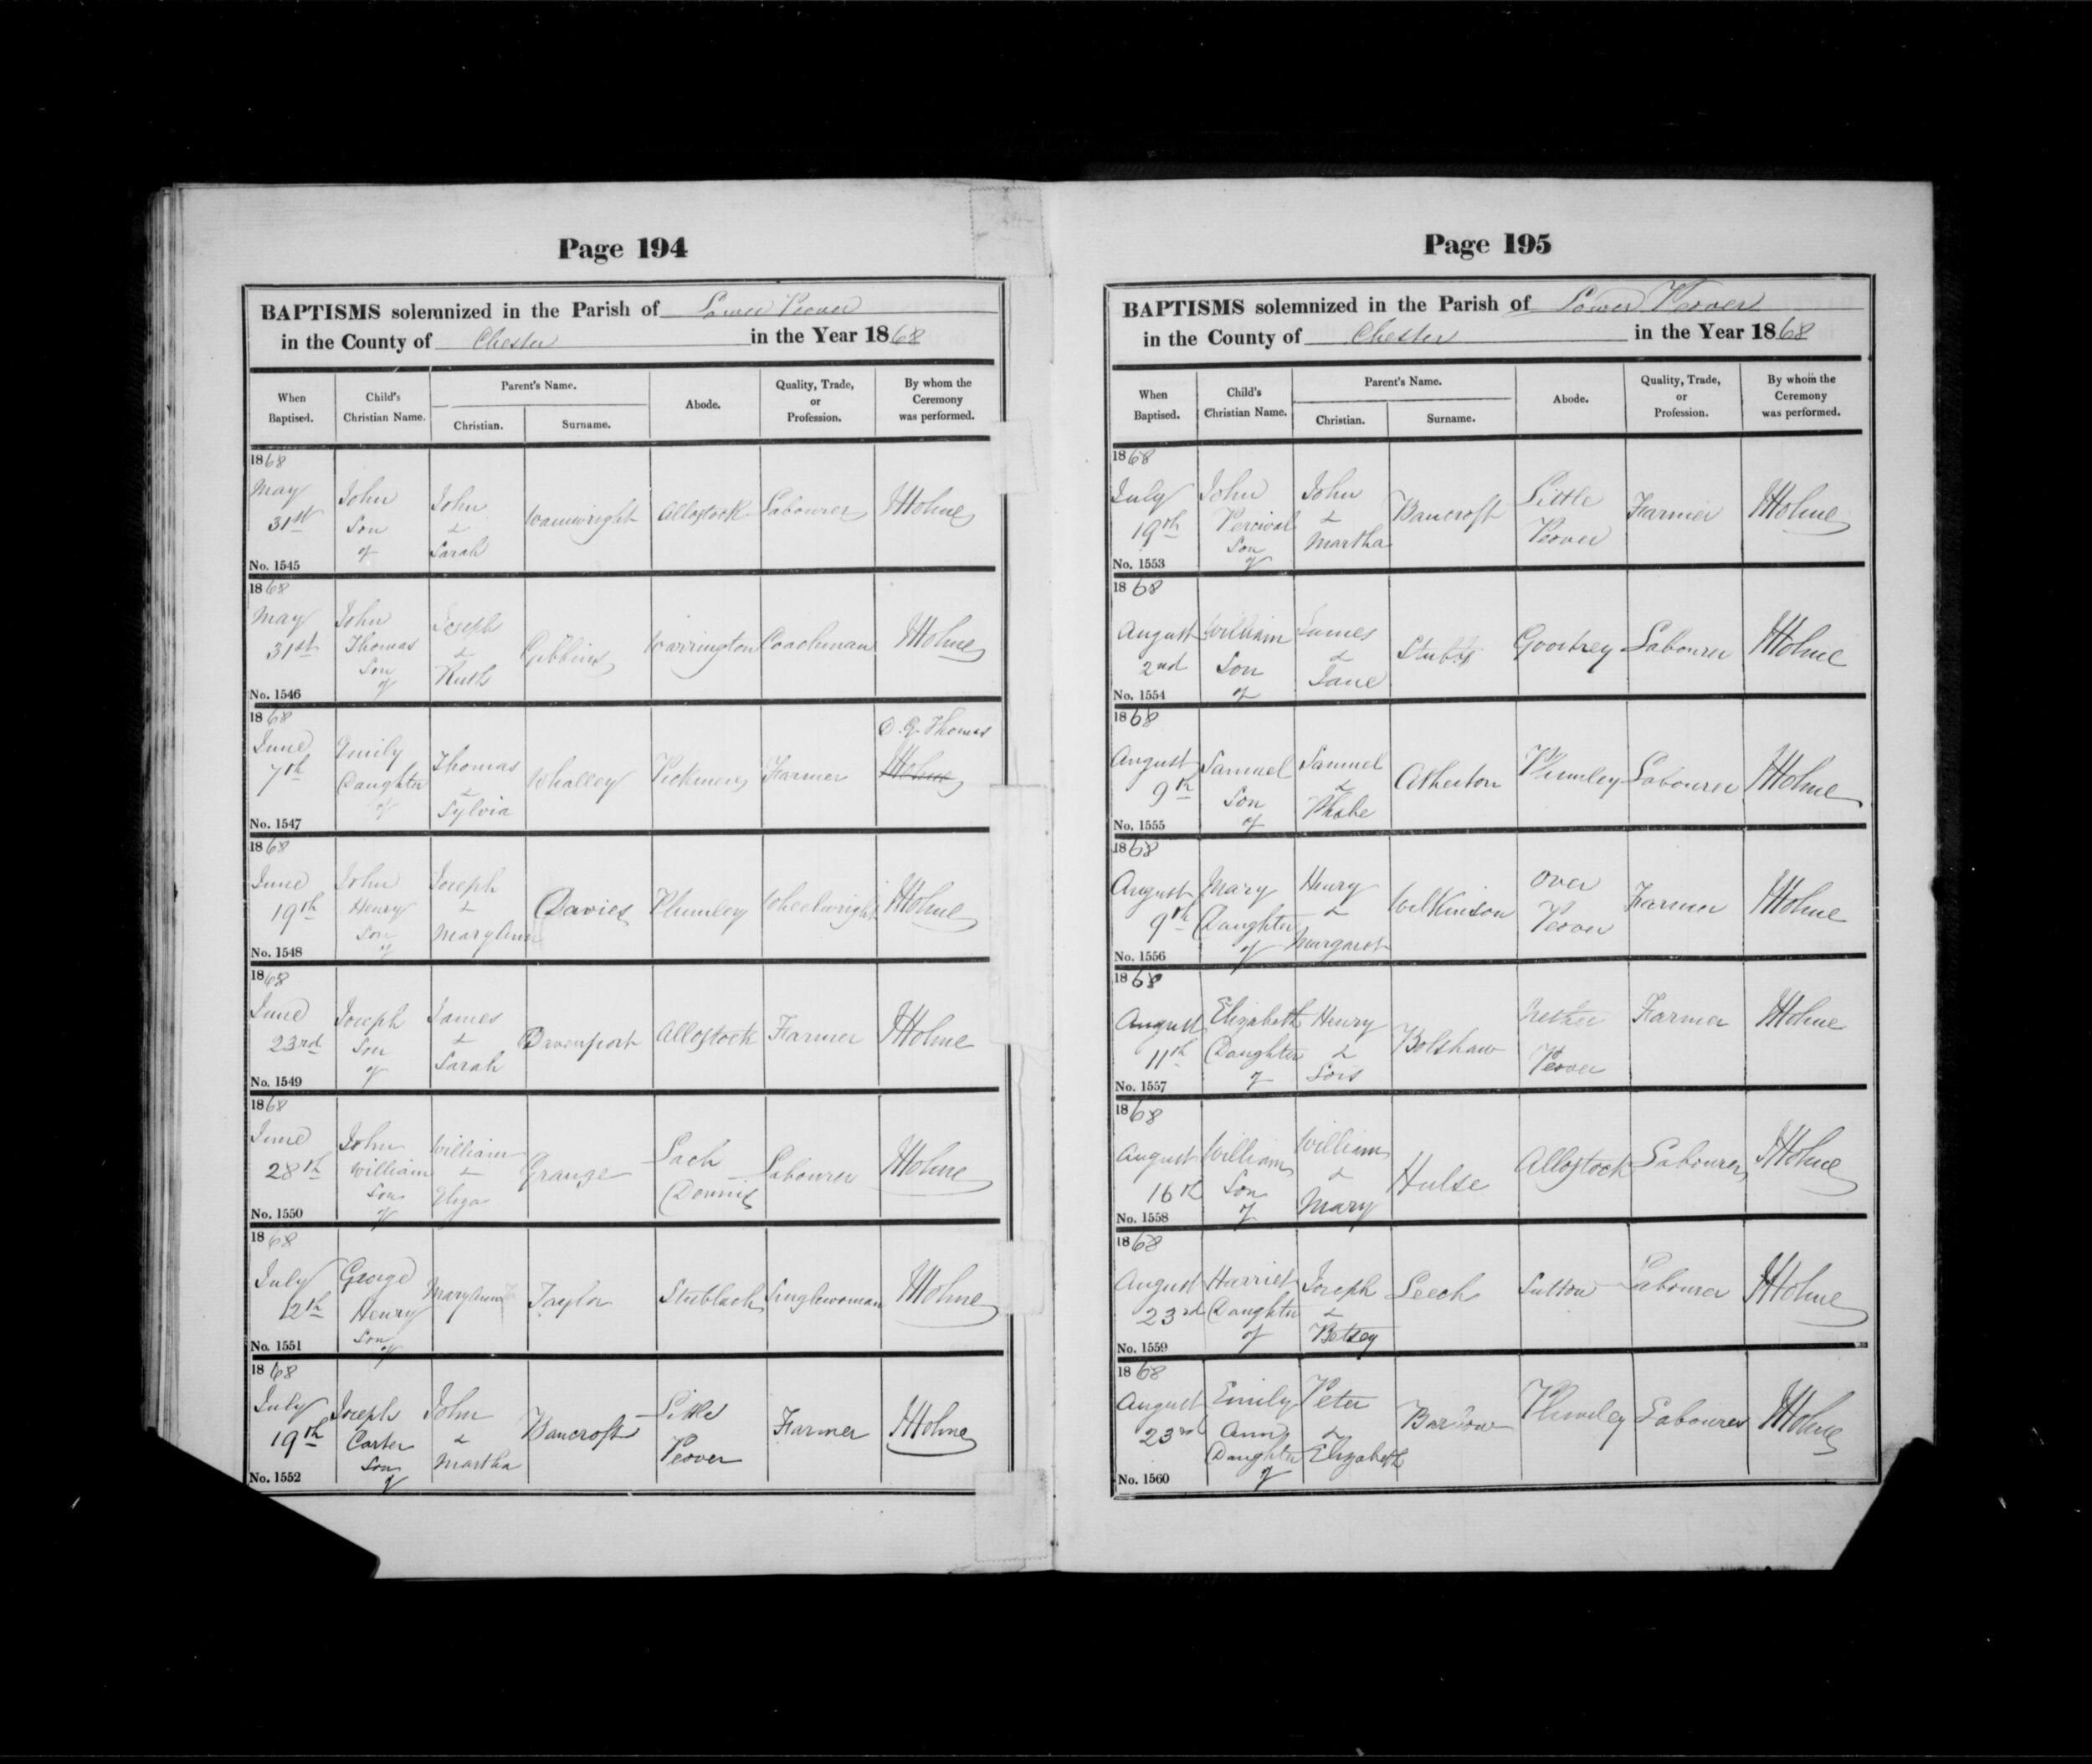 Page 194
BAPTISMS solemnized in the Parish of Lower Peover
in the County of Chester in the Year 1868
When Baptised. Child's Christian Name. Parent's Name. Christian. Surname. Abode. Quality, Trade, or Profession. By whom the Ceremony was performed.
1868
May 31st John Son of John & Sarah Wainwright Allostock Labourer Holme
No. 1545
1868
May 31st John Thomas Son of Joseph & Ruth Gibbins Warrington Coachman Holme
No. 1546
1868
June 7th Emily Daughter of Thomas & Sylvia Whalley Pickmere Farmer Thomas Holme
No. 1547
1868
June 19th John Henry Son of Joseph & Mary Ann Davies Plumley Wheelwright Holme
No. 1548
1868
June 23rd Joseph Son of James & Sarah Davenport Allostock Farmer Holme
No. 1549
1868
June 28th John William Son of William & Eliza Grange Lach Dennis Labourer Holme
No. 1550
1868
July 12th George Henry Son of Mary Ann Taylor Stublach Singlewoman Holme
No. 1551
1868
July 19th Joseph Carter Son of John & Martha Bancroft Little Peover Farmer Holme
No. 1552
Page 195
BAPTISMS solemnized in the Parish of Lower Peover
in the County of Chester in the Year 1868
When Baptised. Child's Christian Name. Parent's Name. Christian. Surname. Abode. Quality, Trade, or Profession. By whom the Ceremony was performed.
1868
July 19th John Percival Son of John & Martha Bancroft Little Peover Farmer Holme
No. 1553
1868
August 2nd William Son of James & Jane Stubbs Goostrey Labourer Holme
No. 1554
1868
August 9th Samuel Son of Samuel & Phobe Atherton Plumley Labourer Holme
No. 1555
1868
August 9th Mary Daughter of Henry & Margaret Wilkinson Over Peover Farmer Holme
No. 1556
1868
August 11th Elizabeth Daughter of Henry & Lois Bolshaw Nether Peover Farmer Holme
No. 1557
1868
August 16th William Son of William & Mary Hulse Allostock Labourer Holme
No. 1558
1868
August 23rd Harriet Daughter of Joseph & Betsey Leech Sutton Labourer Holme
No. 1559
1868
August 23rd Emily Ann Daughter of Peter & Elizabeth Barlow Plumley Labourer Holme
No. 1560